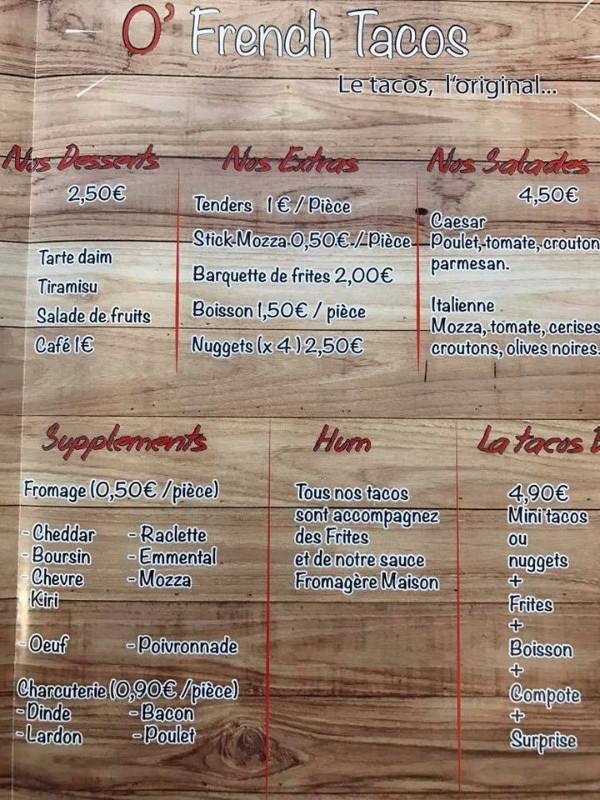 O' French Tacos
Le tacos, l'original...
Nos Desserts
2,50€
Tarte daim
Tiramisu
Salade de fruits
Café 1€
Nos Extras
Tenders 1€ / Pièce
Stick Mozza 0,50€ / Pièce
Barquette de frites 2,00€
Boisson 1,50€ / pièce
Nuggets (x 4) 2,50€
Nos Salades
4,50€
Caesar
Poulet, tomate, crouton
parmesan.
Italienne
Mozza, tomate, cerises
croutons, olives noires.
Supplements
Fromage (0,50€ /pièce)
- Cheddar - Raclette
- Boursin - Emmental
- Chevre - Mozza
- Kiri
- Oeuf - Poivronnade
Charcuterie (0,90€ /pièce)
- Dinde - Bacon
- Lardon - Poulet
Hum
Tous nos tacos
sont accompagnez
des Frites
et de notre sauce
Fromagère Maison
La tacos
4,90€
Mini tacos
ou
nuggets
+
Frites
+
Boisson
+
Compote
+
Surprise